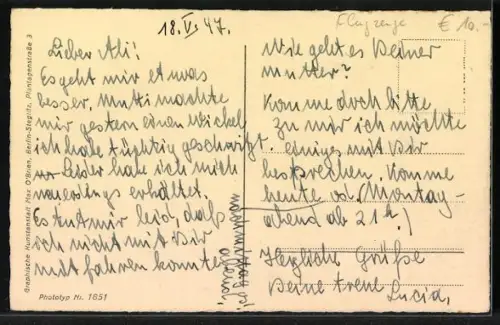 18. V. 47.
Flugzeuge
€ 10.-
Lieber Ali!
Es geht mir etwas
besser. Mutti machte
mir gestern einen Wickel
ich habe tüchtig geschwitzt.
Leider hab ich mich
neuerdings erkältet.
Es tut mir leid, daß
ich nicht mit Dir
mitfahren konnte
Wie geht es Deiner
Mutter?
Komme doch bitte
zu mir ich möchte
einiges mit Dir
besprechen. Komme
heute od. (Montag-
abend ab 21h!)
Herzliche Grüße
Deine treue Lucia.
Graphische Kunstanstalt Max O'Brien, Berlin-Steglitz, Plantagenstraße 3
Phototyp Nr. 1851